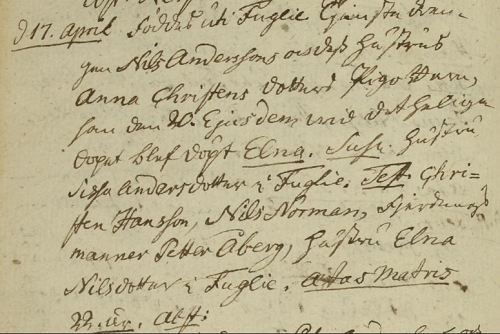 D 17. April Föddes uti Fuglie Tjensta dren-
gen Nils Anderssons oc deß hustrus
Anna Christens dotters Pigo barn,
som den 20. Ejusdem wid det helige
dopet blef döpt Elna. Susc. hustru
Sissa Andersdotter i Fuglie. Test. Chri-
sten Hansson, Nils Norman, Fjerdings
manner Petter Åberg, hustru Elna
Nilsdotter i Fuglie. Ætas Matris
22. år.